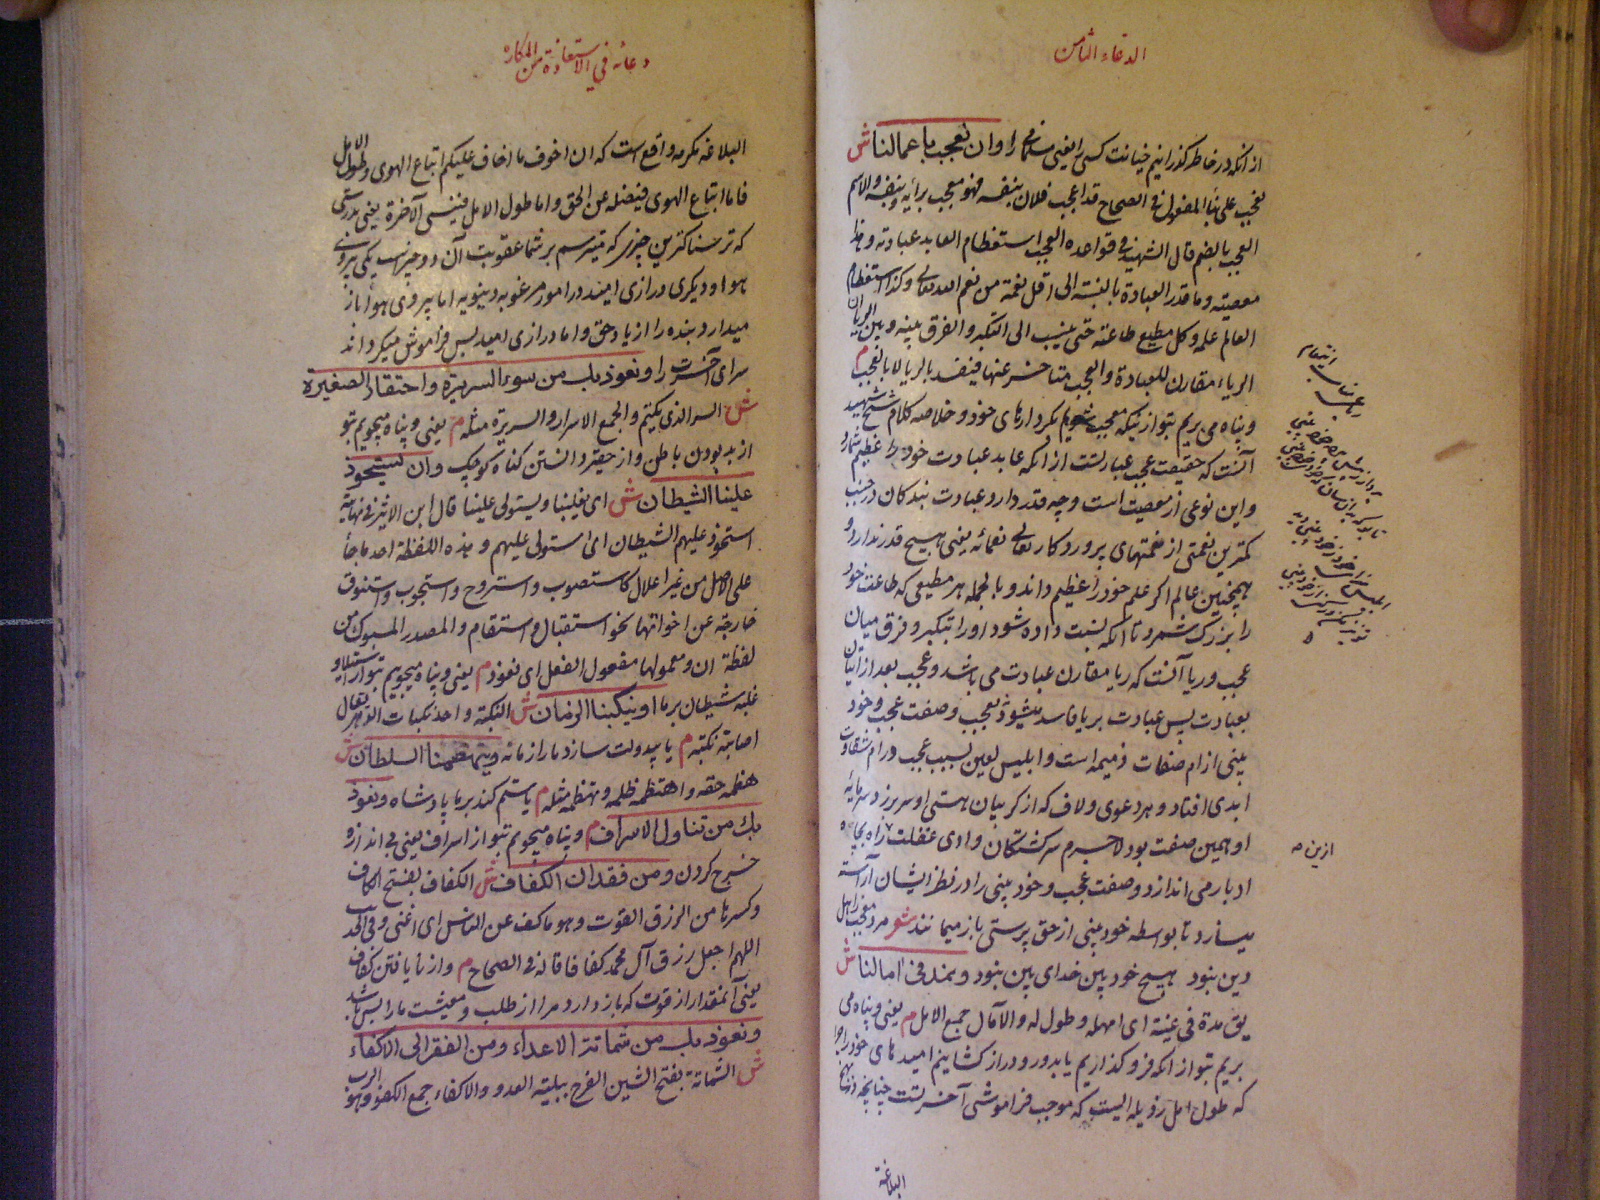 الدعاء الثامن
از انکه در خاطر کذرانیم خیانت کسی را یعنی مسلمانان را وان نعجب باعمالنا ش
نعجب علی بناء المفعول فی الصحاح قد اعجب فلان بنفسه فهو معجب برائه وبنفسه والاسم
العجب بالضم قال الشهید فی قواعده العجب استعظام العابد عبادته وهذا
معصیته وما قدر العبادة بالنسبة الی اقل نعمة من نعم الله تعالی وکذا استعظام
العالم علمه وکل مطیع طاعته حتی ینسب الی التکبر والفرق بینه وبین الریا ان
الریاء مقارن للعبادة والعجب متاخر عنها فیفسد بالریا لا بالعجب م
وپناه می بریم بتو از اینکه معجب شویم بکردارهای خود وخلاصه کلام شیخ شهید
آنست که حقیقت عجب عبارتست از انکه عابد عبادت خود را عظیم شمارد
واین نوعی از معصیت است وچه قدر دارد عبادت بندکان در جنب
کمترین نعمتی از نعمتهای پروردکار تعالی نعمائه یعنی هیچ قدر ندارد و
همچنین عالم اکر علم خود را عظیم داند وبالجمله هر مطیعی که طاعت خود
را بزرک شمرد تا انکه نسبت داده شود او را بتکبر وفرق میان
عجب وریا آنست که ریا مقارن عبادت می باشد وعجب بعد از اتیان
بعبادت پس عبادت بریا فاسد میشود نه بعجب وصفت عجب وخود
بینی از ام صفات ذمیمه است وابلیس لعین بسبب عجب در ام شقاوت
ابدی افتاد وهر دعوی ولاف که از کریبان هستی او سر برزد سرمایه
او همین صفت بود لاجرم سرکشتکان وادی غفلت را بچاه
ادبار می اندازد وصفت عجب وخود بینی را در نظر ایشان آراسته
میسازد تا بواسطه خود بینی از حق پرستی باز میمانند شعر مرد معجب ز اهل
دین نبود هیچ خود بین خدای بین نبود ویمد فی امالنا ش
یق مده فی غیه ای امهله وطول له والآمال جمع الامل م یعنی وپناه می
بریم بتو از انکه فرو کذاریم یا بدور ودراز کشانیم امیدهای خود را چرا
که طول امل رذیله ایست که موجب فراموشی آخرتست چنانچه در نهج
البلاغة
ازین ص
دعائه فی الاستعاذة من المکاره
البلاغه مکرمه واقع است که ان اخوف ما اخاف علیکم اتباع الهوی وطول الامل
فاما اتباع الهوی فیضله عن الحق واما طول الامل فینسی الآخرة یعنی بدرستی
که ترسناکترین چیزی که میترسم بر شما عقوبت آن دو چیز است یکی پیروی
هوا ودیکری درازی امید در امور مرغوبه دنیویه اما پیروی هوا باز
میدارد بنده را از یاد حق واما درازی امید پس فراموش میکرداند
سرای آخرت را ونعوذ بك من سوء السریرة واحتقار الصغیرة
ش السر الذی یکتم والجمع الاسرار والسریرة مثله م یعنی وپناه میجویم بتو
از بد بودن باطن واز حقیر دانستن کناه کوچک وان یستحوذ
علینا الشیطان ش ای یغلبنا ویستولی علینا قال ابن الاثیر فی نهایته
استحوذ علیهم الشیطان ای استولی علیهم وهذه اللفظة احد ما جاء
علی الاصل من غیر اعلال کاستصوب واستروح واستجوب واستنوق
خارجة عن اخواتها نحو استقبال واستقام والمصدر المسبوک من
لفظة ان ومعمولها مفعول الفعل ای نعوذ م یعنی وپناه میجویم بتو از استیلا و
غلبه شیطان بر ما او ینکبنا الزمان ش النکبة واحد نکبات الدهر یقال
اصابته نکبة م یا بیدولت سازد ما را زمانه ویتهضمنا السلطان ش
هضمه حقه واهتضمه ظلمه وتهضمه مثله م یا ستم کند بر ما پادشاه ونعوذ
بك من تناول الاسراف م وپناه میجویم بتو از اسراف یعنی بی اندازه
خرج کردن ومن فقدان الکفاف ش الکفاف بفتح الکاف
وکسرها من الرزق القوت وهو ما کف عن الناس ای اغنی وفی الحدیث
اللهم اجعل رزق آل محمد کفافا قاله فی الصحاح م واز نایافتن کفاف
یعنی آنمقدار از قوت که باز دارد مرا از طلب ومعیشت ما را بس باشد
ونعوذ بك من شماتة الاعداء ومن الفقر الی الاکفاء
ش الشماتة بفتح الشین الفرح ببلیة العدو والاکفاء جمع الکفو وهو